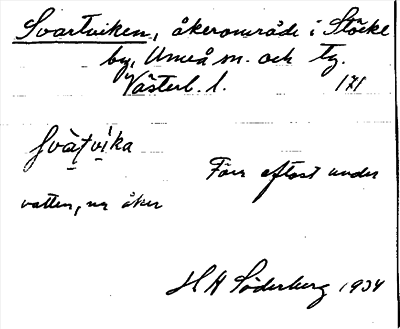 Svartviken, åkerområde i Stöcke
by, Umeå sn. och tg.
Västerb. l. 171
Svàtvi̍ka
Förr oftast under
vatten, nu åker
H H Söderberg 1934